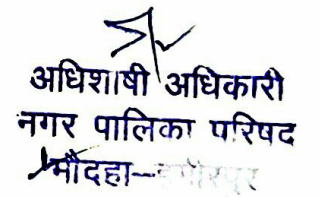 अधिशाषी अधिकारी
नगर पालिका परिषद
मौदहा-हमीरपुर